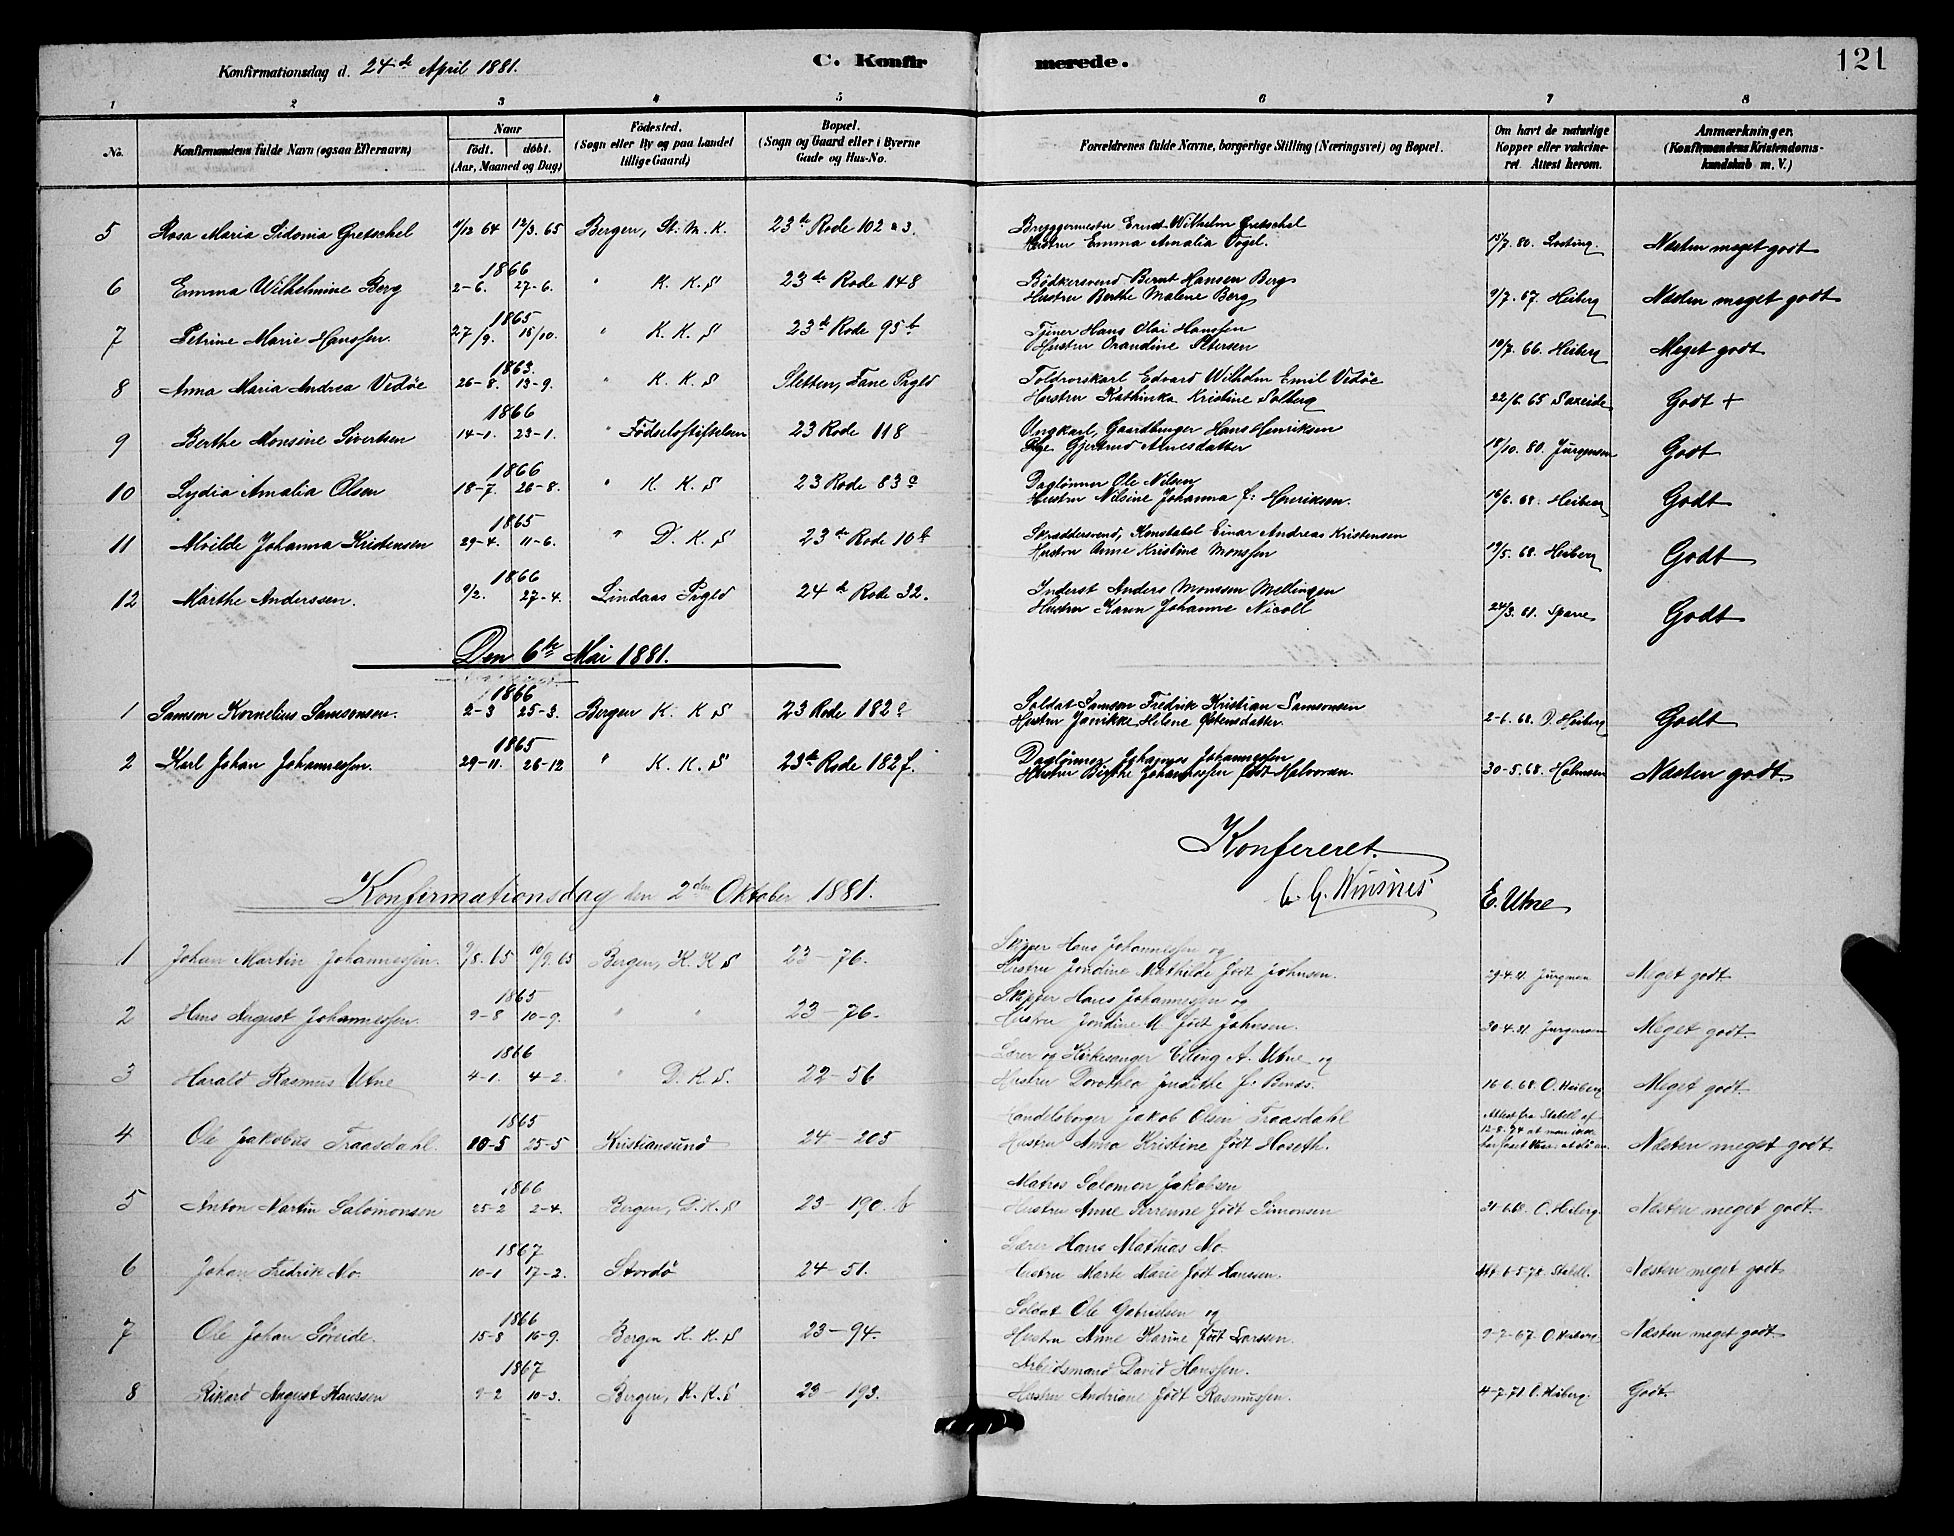 Konfirmationsdag d. 24de April 1881. C. Konfirmerede. 121
1 2 3 4 5 6 7 8
No. Konfirmandens fulde Navn (ogsaa Efternavn) Naar født. døbt. (Aar, Maaned og Dag) Fødested. (Sogn eller By og paa Landet tillige Gaard) Bopæl. (Sogn og Gaard eller i Byerne Gade og Hus-No. Forældrenes fulde Navne, borgerlige Stilling (Næringsvei) og Bopæl. Om havt de naturlige Kopper eller vakcineret. Attest herom. Anmærkninger. (Konfirmandens Kristendomskundskab m. V.)
5 Rosa Maria Sidonia Gretschel 1/12 64 12/3. 65 Bergen, St. M. K. 23de Rode 102 Bryggermester Ernst Wilhelm Gretschel
Hustru Emma Amalia Vogel. 15/7. 80. Næsten meget godt
6 Emma Wilhelmine Berg 1866 2-6. 27-6. " K. K. S 23de Rode 148 Bødkersvend Bernt Hansen Berg
Hustru Berthe Malene Berg 9/7. 67. Heiberg Næsten meget godt
7 Petrine Marie Hanssen. 1865 27/9. 15/10. " K. K. S 23de Rode 95b Tjener Hans Olai Hanssen
Hustru Orandine Petersen 10/7. 66. Heiberg Meget godt
8 Anna Maria Andrea Vedøe 1863. 26-8. 13-9. " K. K. S Sletten, Fane Prgld Toldrorskarl Edvard Wilhelm Emil Vedøe
Hustru Kathinka Kristine Solberg 22/6. 65 Saxeide Godt +
9 Berthe Monsine Sivertsen 1866 14-1. 23-1. " Fødselsstiftelsen 23 Rode 118 Ungkarl, Gaardbruger Hans Henriksen
Pige Gjertrud 18/10. 80. Jurgensen Godt
10 Lydia Amalia Olsen 1866 18-7. 26-8. " K. K. S 23 Rode 83a Daglønner Ole Nilsen
Hustru Nilsine Johanna f: Henriksen. 16/6. 68. Heiberg Godt
11 Mvilde Johanna Kristensen 1865 29-4. 11-6. " D. K. S 23de Rode 10b Skræddersvend, Konstabel Einar Andreas Kristensen
Hustru Anne Kristine Monssen 19/5. 68. Heiberg Godt
12 Marthe Anderssen. 1866 9/2. 27-4. Lindaas Prgld 24de Rode 32. Inderst Anders Monssen Mellingen
Hustru Karen Johanne Nicoll 24/3. 81. Sparre Godt
Den 6te Mai 1881.
1 Samson Kornelius Samsonsen. 1866 2-3 25-3. Bergen K. K. S 23 Rode 182e Soldat Samson Fredrik Kristian Samsonsen
Hustru Janikke Helene Østensdatter. 2-6. 68. O. Heiberg Godt
2 Karl Johan Johannessen. 1865 29-11. 26-12 " K. K. S 23de Rode 182 f. Daglønner Johannes Johannessen
Hustru Birthe Johannessen født Halvorsen. 30-5. 68. Holmsen Næsten godt.
Konfereret.
C. G. Winsnes E. Utne
Konfirmationsdag den 2den Oktober 1881.
1 Johan Martin Johannessen. 9/8. 65 10/9. 65 Bergen, K. K S 23-76. Skipper Hans Johannessen og
Hustru Jondine Mathilde født Johnsen. 29-4. 81 Jurgensen Meget godt.
2 Hans August Johannessen. 1865 9-8 10-9. " " 23-76. Skipper Hans Johannessen og
Hustru Jondine M. født Johnsen. 30-4. 81 Jurgensen Meget godt.
3 Harald Rasmus Utne 1866 4-1. 4-2. " D. K. S. 22-56 Lærer og Kirkesanger Elling A. Utne og
Hustru Dorothea Judithe f: Bends. 16-6. 68. O. Heiberg Meget godt.
4 Ole Jakobus Fraasdahl. 1865 10-5 25-5 Kristiansund 24-205 Handelsborger Jakob Olsen Fraasdahl
Hustru Anna Kristine født Hoseth. Attest fra Stabell af 12-8. 74 at man ikke Næsten meget godt
5 Anton Martin Salomonsen 1866 25-2 2-4. Bergen, D. K. S 23-190. b Matros Salomon Jakobsen
Hustru Anne Serrenne født Simonsen O. Heiberg. Næsten meget godt.
6 Johan Fredrik Mo. 1867 10-1 17-2. Stordø 24-51. Lærer Hans Mathias Mo.
Hustru Marte Marie født Hanssen. Att. 6-5. 78. Stabell. Næsten meget godt
7 Ole Johan Søreide. 1866 15-8 16-9. Bergen K. K. S 23-94. Soldat Ole Gabrielsen og
Hustru Anne Karine født Larssen. 9-2-67. O. Heiberg. Næsten meget godt
8 Rikard August Hanssen 1867 9-2 10-3. Bergen, K. K. S 23-193. Arbeidsmand David Hanssen.
Hustru Andriane født Rasmussen. 4-7. 71 O. Heiberg. Godt.